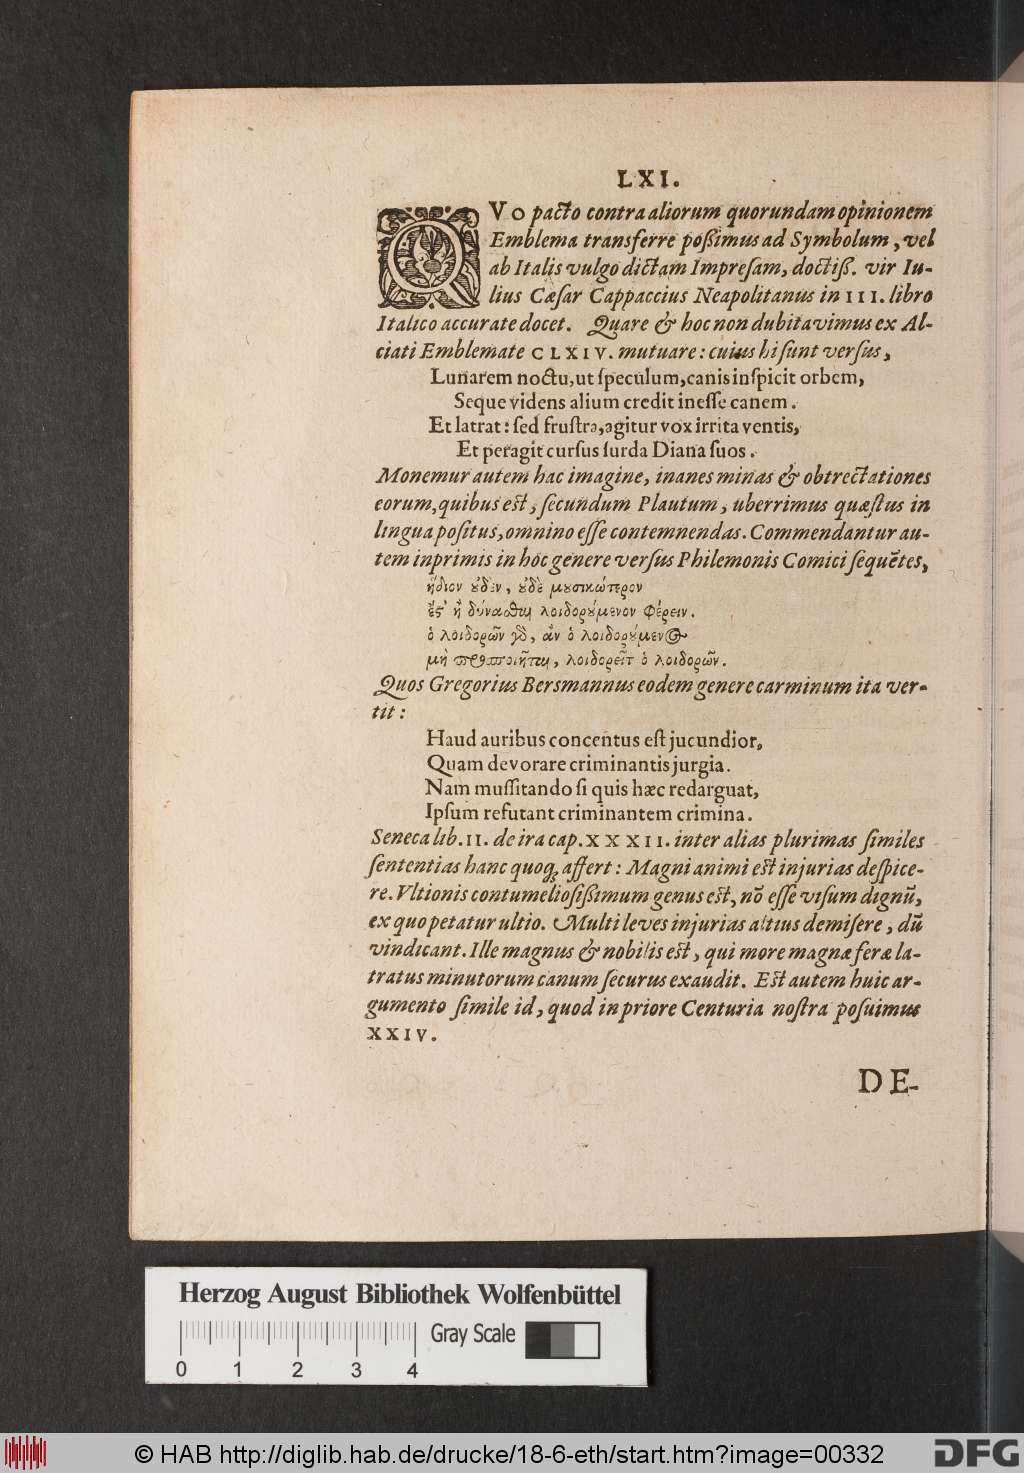 LXI.
QVO pacto contra aliorum quorundam opinionem
Emblema transferre poßimus ad Symbolum, vel
ab Italis vulgo dictam Impreſam, doctiß. vir Iu-
lius Cæſar Cappaccius Neapolitanus in III. libro
Italico accurate docet. Quare & hoc non dubitavimus ex Al-
ciati Emblemate CLXIV. mutuare: cuius hi ſunt verſus,
Lunarem noctu, ut ſpeculum, canis inſpicit orbem,
Seque videns alium credit ineſſe canem.
Et latrat: ſed fruſtra, agitur vox irrita ventis,
Et peragit curſus ſurda Diana ſuos.
Monemur autem hac imagine, inanes minas & obtrectationes
eorum, quibus est, ſecundum Plautum, uberrimus quæſtus in
lingua poſitus, omnino eſſe contemnendas. Commendantur au-
tem inprimis in hoc genere verſus Philemonis Comici ſequẽtes,
ἥδιον ȣ̓δὲν, ȣ̓δὲ μȣσικώτερον
ἔς' ἢ δύνασθαι λοιδορȣ́μενον φέρειν.
ὁ λοιδορῶν γὸ, ἂν ὁ λοιδορȣ́μενος
μὴ προσποιῆται, λοιδορεῖτ ὁ λοιδορῶν.
Quos Gregorius Bersmannus eodem genere carminum ita ver-
tit:
Haud auribus concentus eſt jucundior,
Quam devorare criminantis jurgia.
Nam muſſitando ſi quis hæc redarguat,
Ipſum refutant criminantem crimina.
Seneca lib. II. de ira cap. XXXII. inter alias plurimas ſimiles
ſententias hanc quoq; affert: Magni animi est injurias deſpice-
re. Vltionis contumelioſißimum genus est, nõ eſſe viſum dignũ,
ex quo petatur ultio. Multi leves injurias altius demiſere, dũ
vindicant. Ille magnus & nobilis est, qui more magnæ feræ la-
tratus minutorum canum ſecurus exaudit. Est autem huic ar-
gumento ſimile id, quod in priore Centuria noſtra poſuimus
XXIV.
DE-
Herzog August Bibliothek Wolfenbüttel
Gray Scale
0 1 2 3 4
© HAB http://diglib.hab.de/drucke/18-6-eth/start.htm?image=00332
DFG